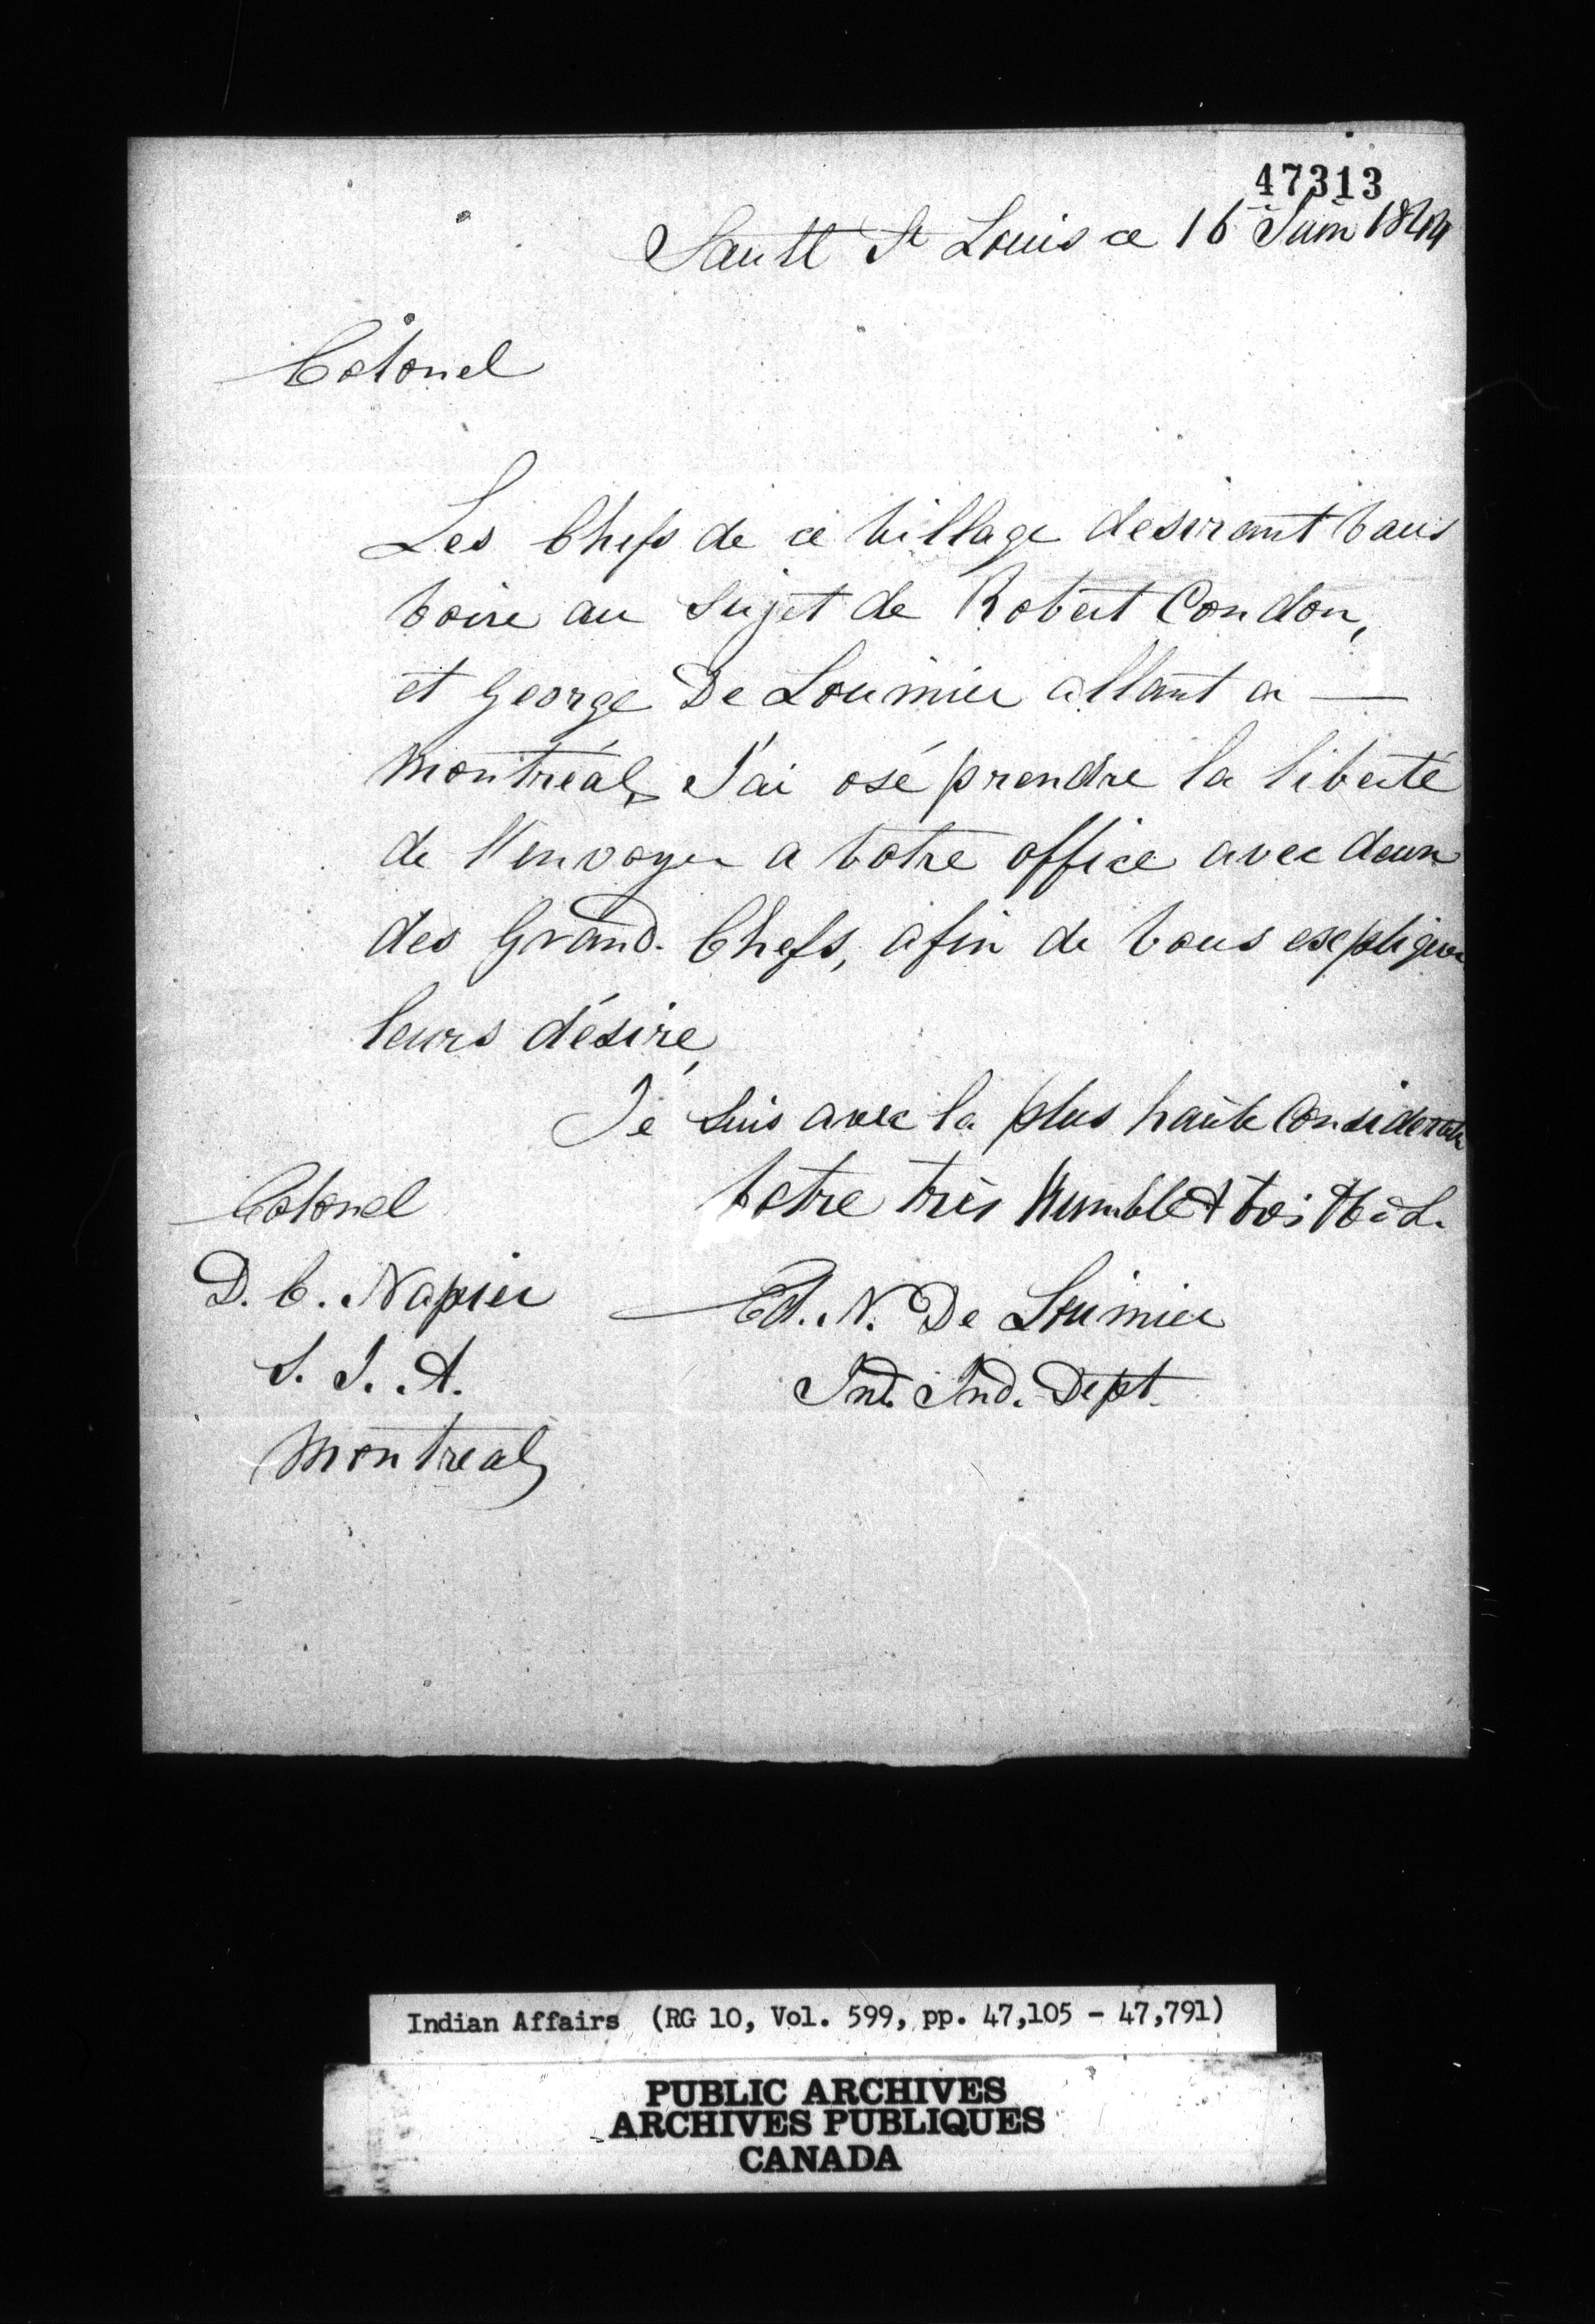 47313
Sautt St Louis ce 16 Juin 1844
Colonel
Les Chefs de ce village desirant vous
voire au sujet de Robert Condon,
et George De Lorimier allant a —
Montréal, J'ai osé prendre la liberté
de l'envoyer a votre office avec deux
des Grand. Chefs, afin de vous expliquer
leurs désire,
Je suis avec la plus haute Consideration
Votre très Humble &
Colonel
D. C. Napier
Ed. N. De Lorimier
S. I. A.
Int. Ind. Dept.
Montreal
Indian Affairs (RG 10, Vol. 599, pp. 47,105 - 47,791)
PUBLIC ARCHIVES
ARCHIVES PUBLIQUES
CANADA